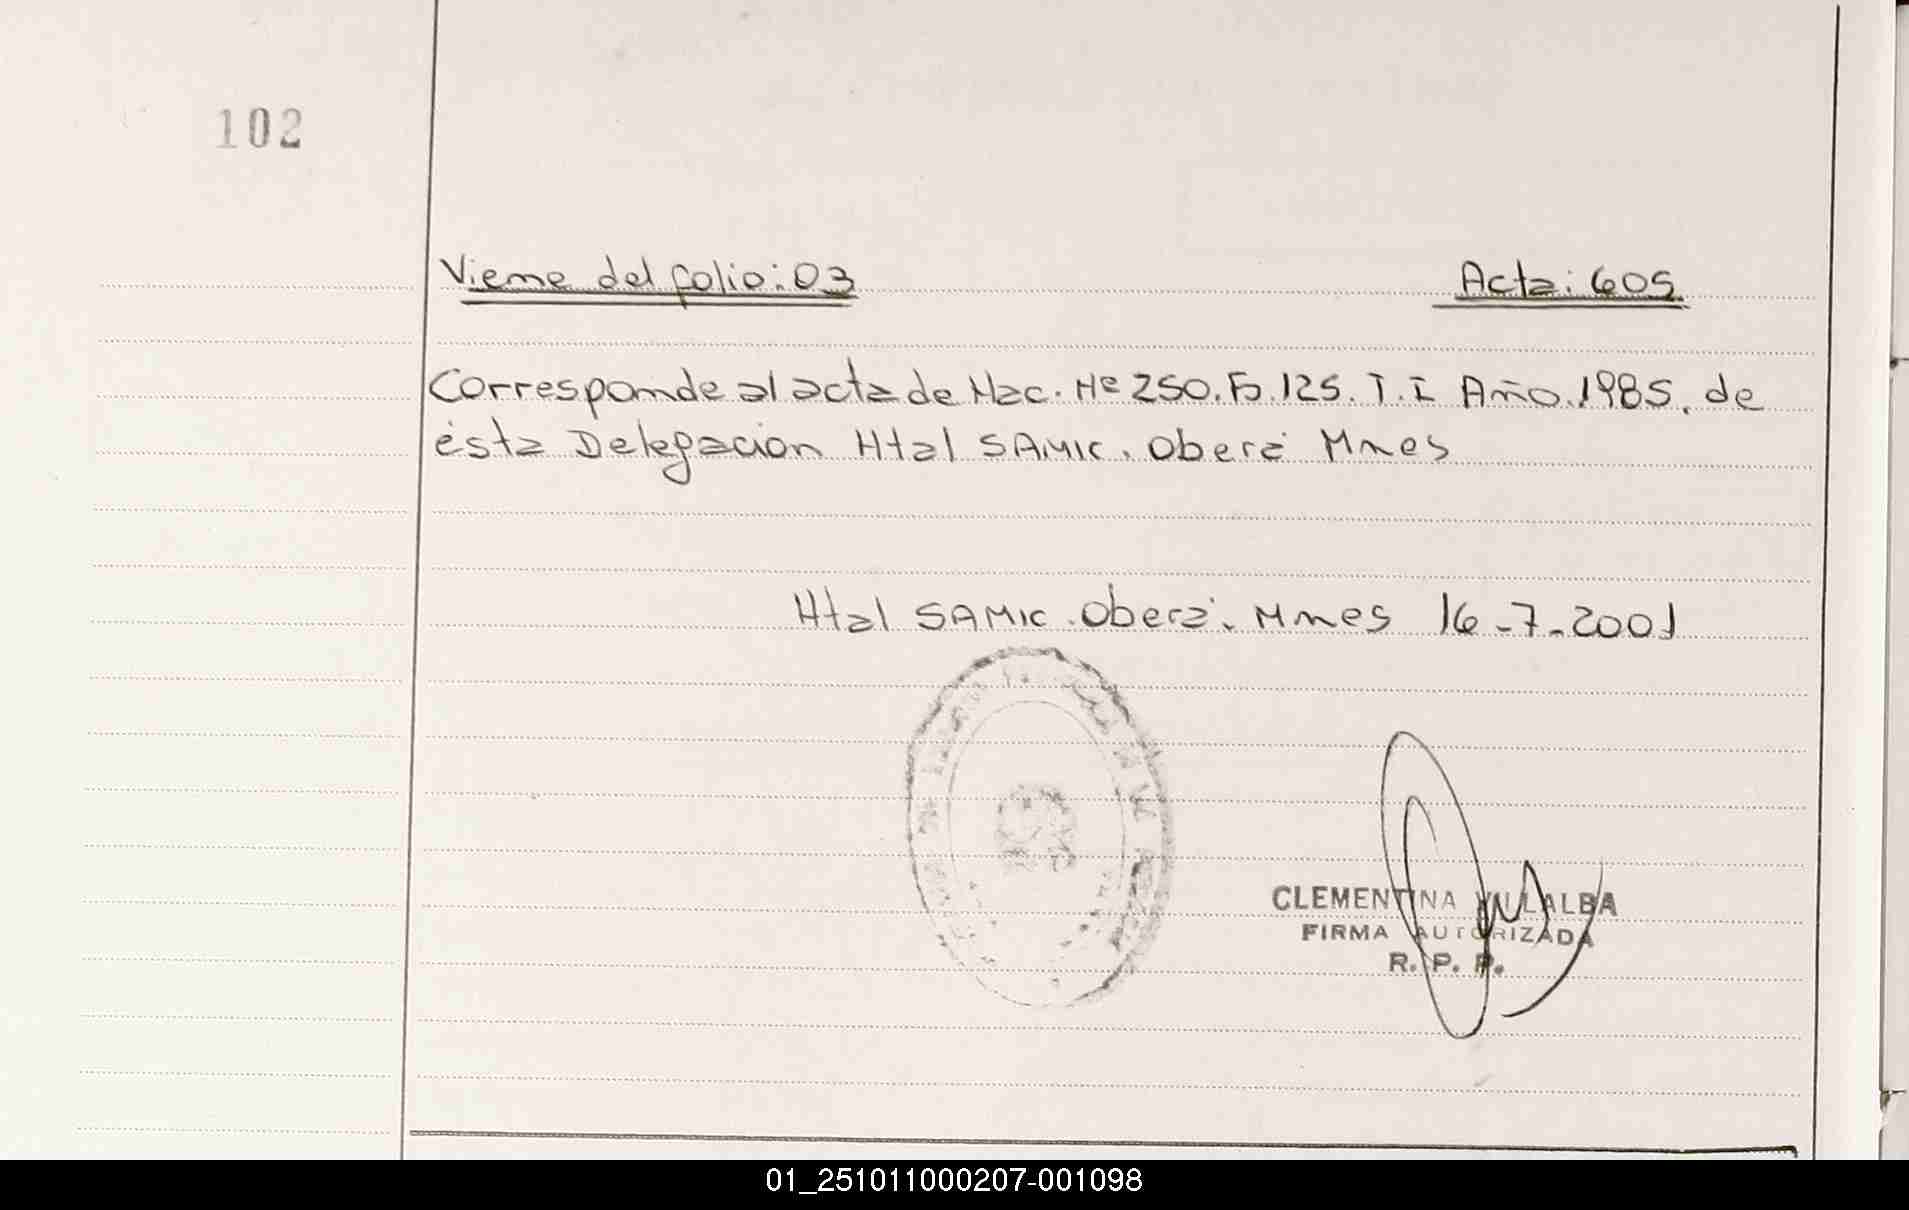 102
Viene del folio: 03 Acta: 605
Corresponde al acta de Nac. Nº 250. Fº. 125. T. I Año. 1985. de
ésta Delegación Htal SAMIC. Oberá Mnes
Htal SAMIC. Oberá. Mnes 16-7-2001
CLEMENTINA VILLALBA
FIRMA AUTORIZADA
R. P. P.
01_251011000207-001098